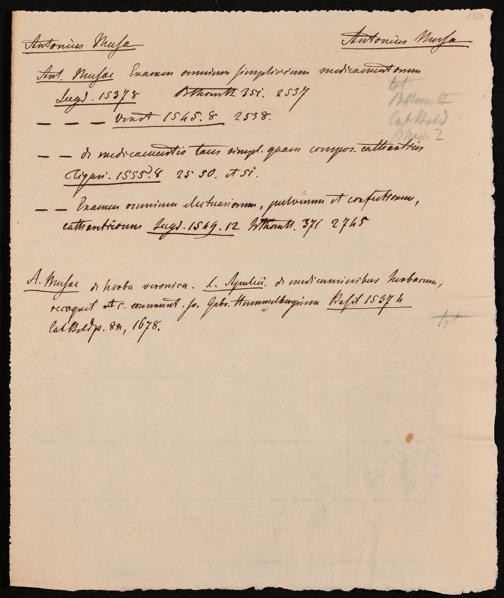 Antonius Musa
Antonius Musa
Ant. Musae Examen omnium simplicium medicamentorum
Lugd. 1537 8 Bthomtt 351. 2537
— — — Venet 1545. 8 2538.
— — de medicamentis taus simpl. quam compos. catharticis
Tiguri. 1555. 8 25 50. et 51.
— — Examen omnium electuariorum, pulverum et confectionum,
catharticorum Lugd. 1549. 12 Bthomtt. 371 2745
A. Musae de herba vetonica. L. Apuleii de medicaminibus herbarum,
recognit et c. comment. fr. Gabr. Hummelbergium Basil 1537 4
Cat Bold p. 84, 1678.